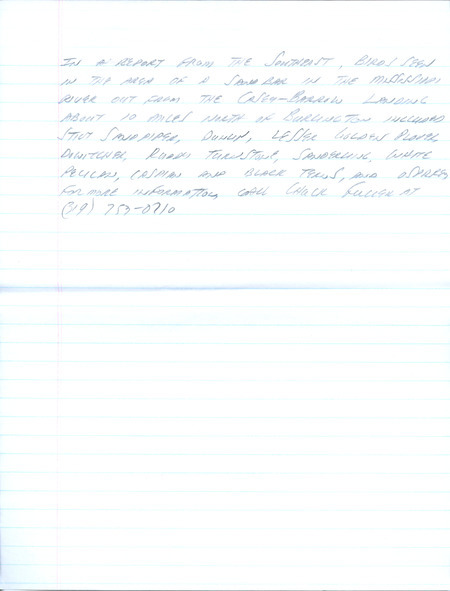 IN A REPORT FROM THE SOUTHEAST, BIRDS SEEN
IN THE AREA OF A SAND BAR IN THE MISSISSIPPI
RIVER OUT FROM THE CASEY-BARROW LANDING
ABOUT 10 MILES NORTH OF BURLINGTON INCLUDED
STILT SANDPIPER, DUNLIN, LESSER GOLDEN PLOVER,
DOWITCHER, RUDDY TURNSTONE, SANDERLING, WHITE
PELICAN, CASPIAN AND BLACK TERNS, AND OSPREY
FOR MORE INFORMATION, CALL CHUCK FULLER AT
(319) 753-0710